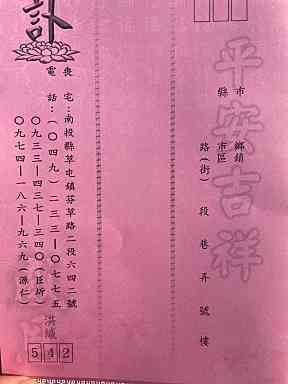 平安吉祥
縣市 鄉鎮市區 路(街) 段 巷 弄 號 樓
訃
喪宅:南投縣草屯鎮芬草路二段六四二號
電話:(〇四九)二三三一〇七七五
〇九三三一四三七一三四〇(臣斿)
〇九七四一一八六一九六九(源仁)
洪緘
542